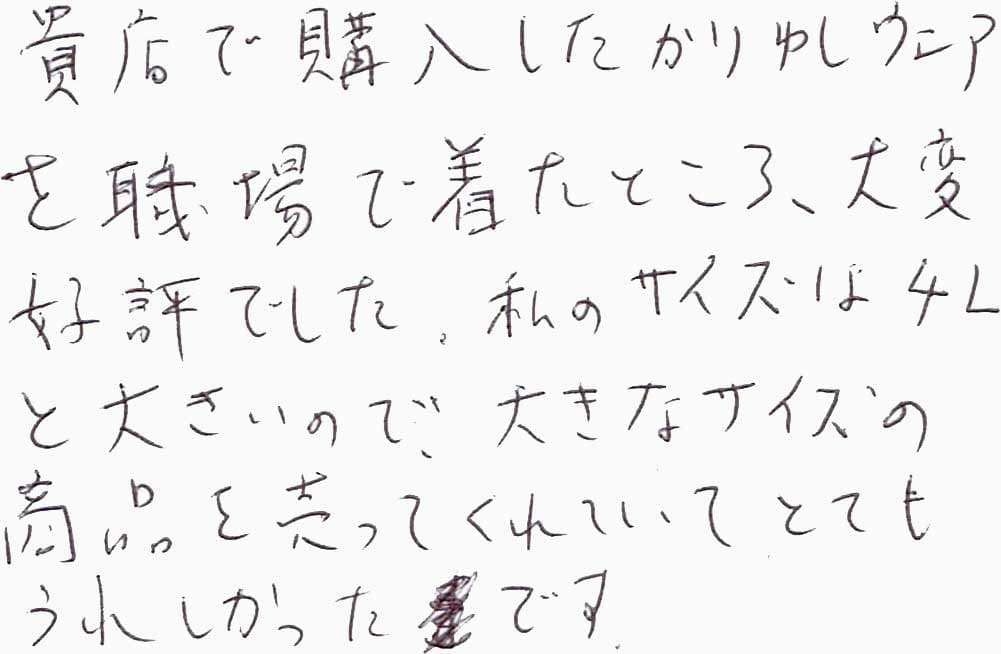 貴店で購入したかりゆしウェア
を職場で着たところ、大変
好評でした。私のサイズは4L
と大きいので、大きなサイズの
商品を売ってくれていてとても
うれしかったです。